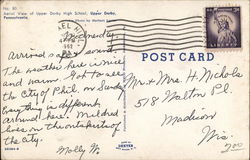 No. 80
Aerial View of Upper Darby High School, Upper Darby,
Pennsylvania
LIBERTY
POST CARD
Wednesday.
Arrived safe & sound.
The weather here is nice
and warm. Got to see
the City of Phil. on Sunday
Everything is different
around here. Mildred
lives on the outskirts of
the city.
Molly N.
Mr. & Mrs. H. Nichols
518 Walton Pl.
Madison
Wis.
DEXTER